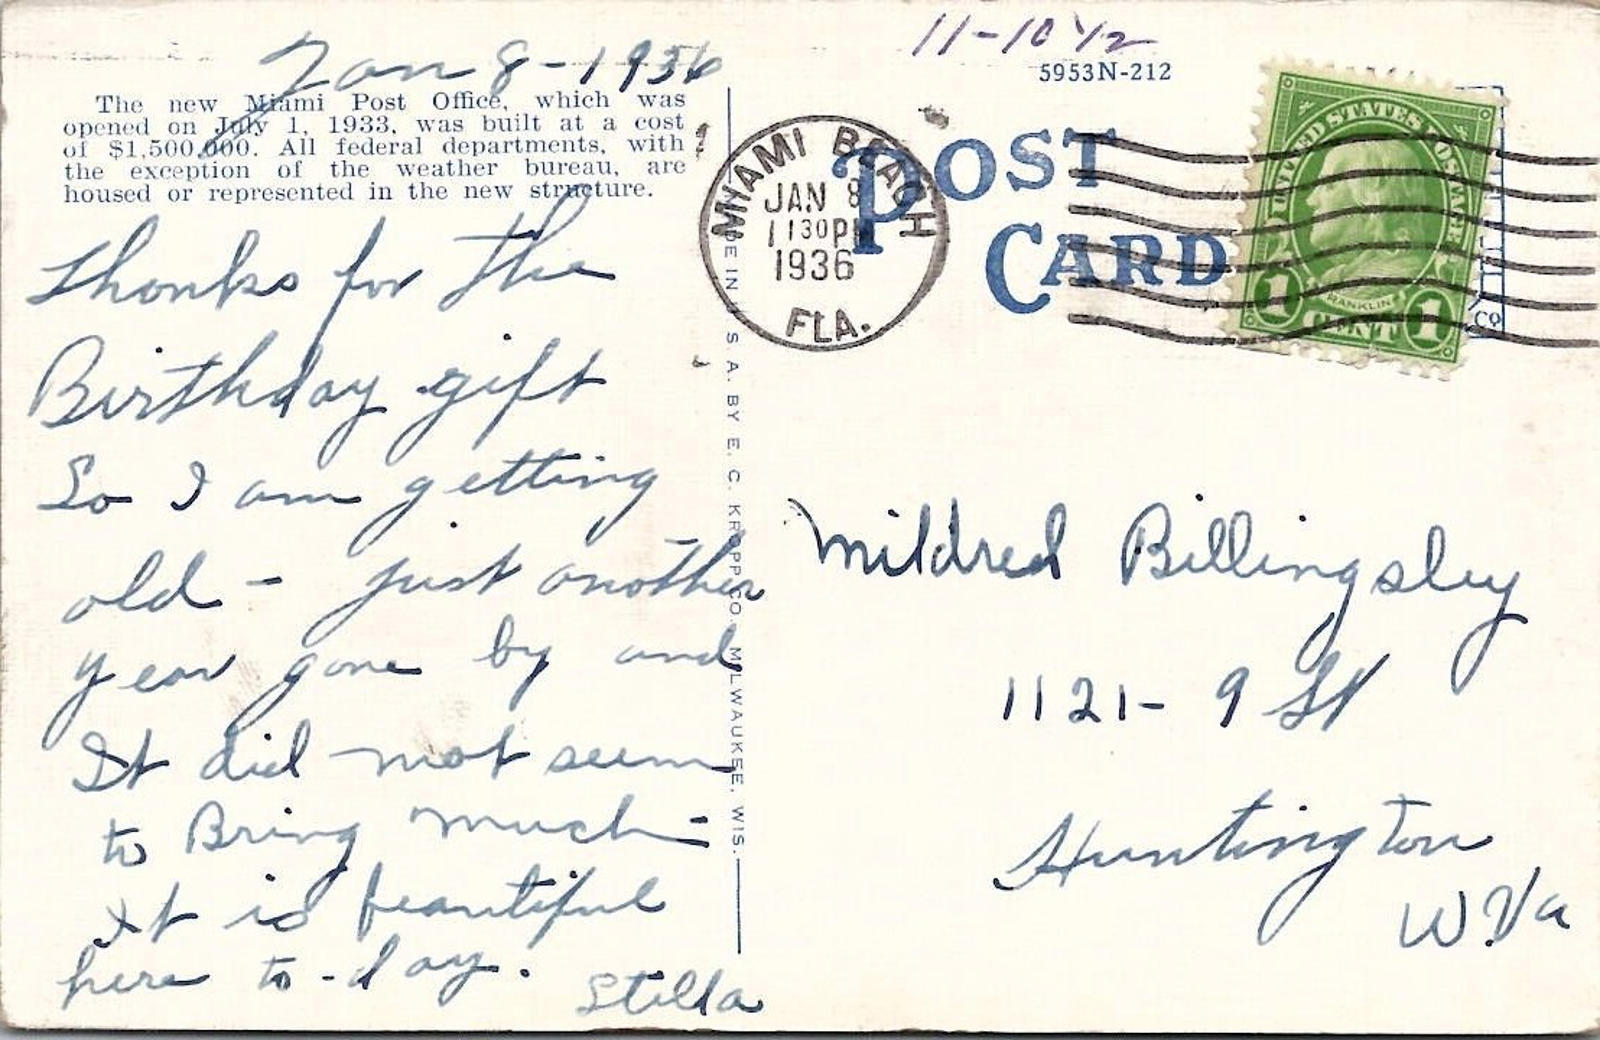 Jan 8-1936
The new Miami Post Office, which was
opened on July 1, 1933, was built at a cost
of $1,500,000. All federal departments, with
the exception of the weather bureau, are
housed or represented in the new structure.
Thanks for the
Birthday gift
So I am getting
old - just another
year gone by and
It did not seem
to Bring much -
It is beautiful
here to-day.
Stella
DE IN U. S. A. BY E. C. KROPP CO., MILWAUKEE, WIS.
11-10 1/2
5953N-212
POST
CARD
MIAMI BEACH
JAN 8
1130PM
1936
FLA.
UNITED STATES POSTAGE
FRANKLIN
1 CENT 1
CO
Mildred Billingsley
1121- 9 St
Huntington
W.Va